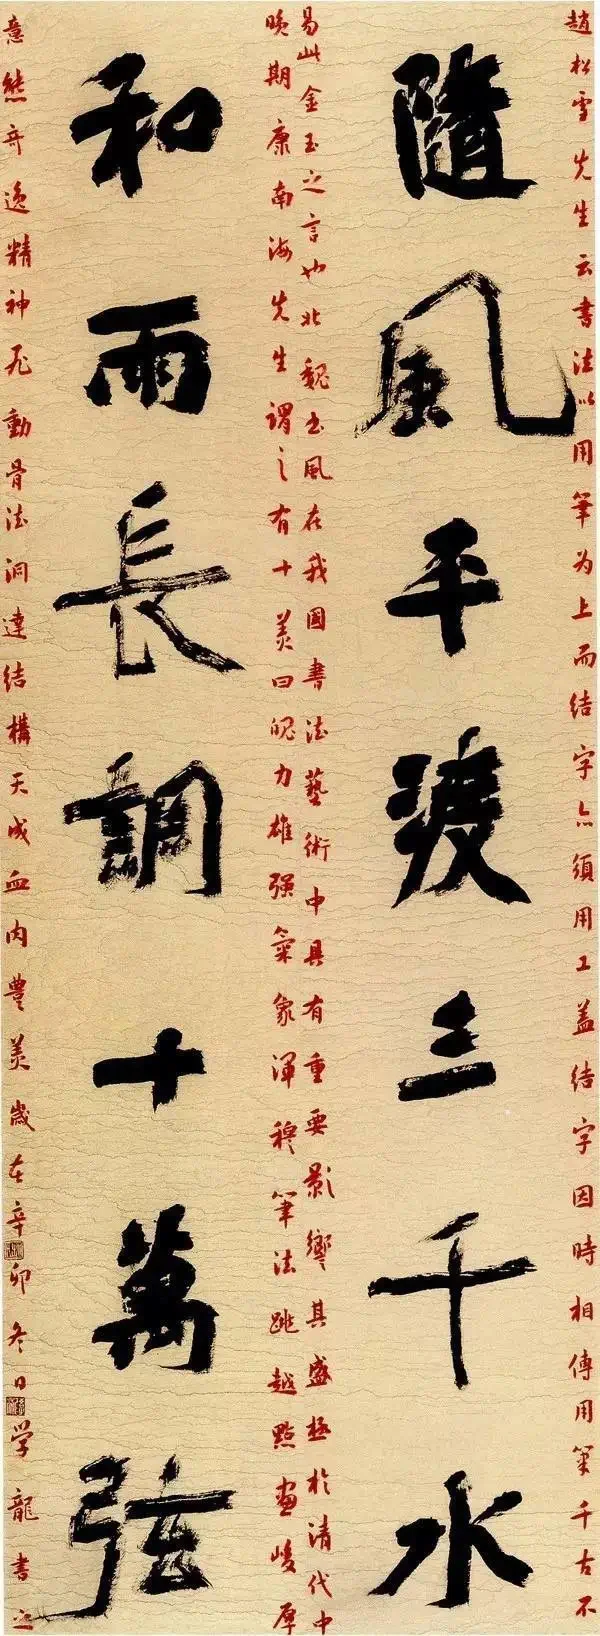 趙松雪先生云書法以用筆为上而结字亦須用工盖结字因時相傳用筆千古不
隨風平渡三千水
易此金玉之言也北魏书風在我國書法藝術中具有重要影響其盛極於清代中
晚期康南海先生謂之有十美曰魄力雄强氣象渾穆筆法跳越點画峻厚
和雨長調十萬弦
意態奇逸精神飛動骨法洞達结構天成血肉豐美歲在辛卯冬日学龍書之